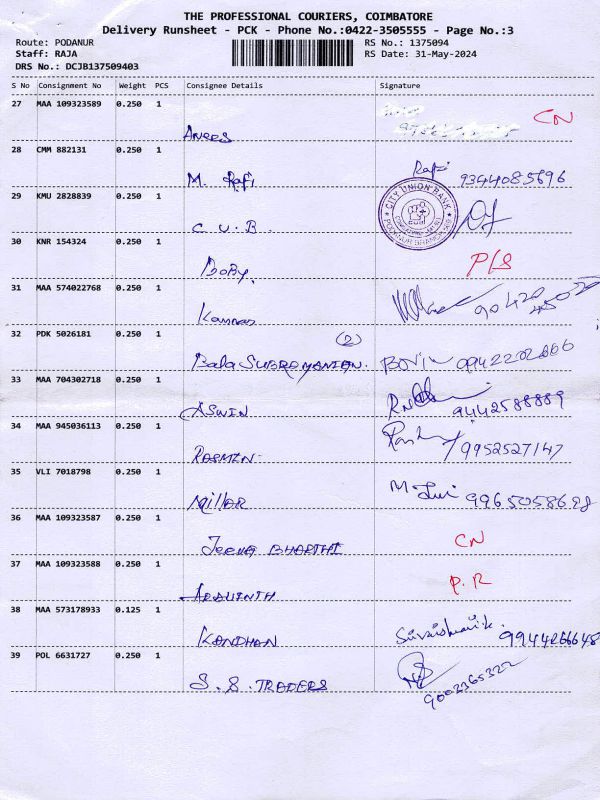 THE PROFESSIONAL COURIERS, COIMBATORE
Delivery Runsheet - PCK - Phone No.:0422-3505555 - Page No.:3
Route: PODANUR RS No.: 1375094
Staff: RAJA RS Date: 31-May-2024
DRS No.: DCJB137509403
S No Consignment No Weight PCS Consignee Details Signature
27 MAA 109323589 0.250 1 Anees CN
28 CMM 882131 0.250 1 M. Rafi Rafi 9344085696
29 KMU 2828839 0.250 1 C. U. B. CITY UNION BANK
30 KNR 154324 0.250 1 BOBY. P/S
31 MAA 574022768 0.250 1 Kannan
32 PDK 5026181 0.250 1 Bala SUBROMANIAN. (2)
33 MAA 704302718 0.250 1 ASWIN 9442588889
34 MAA 945036113 0.250 1 9952527147
35 VLI 7018798 0.250 1 Millar 9965058698
36 MAA 109323587 0.250 1 Jeeva BHARTHI CN
37 MAA 109323588 0.250 1 ARAVINTH P.R
38 MAA 573178933 0.125 1 KANDHAN 9944266648
39 POL 6631727 0.250 1 S. S. TRADERS 9002365322